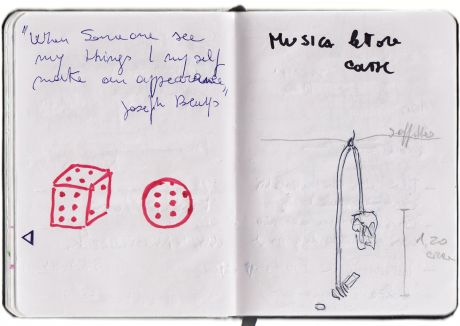 "When Someone see
my things I my self
make an appearance"
Joseph Beuys
Musica
soffitto
1,20
circa